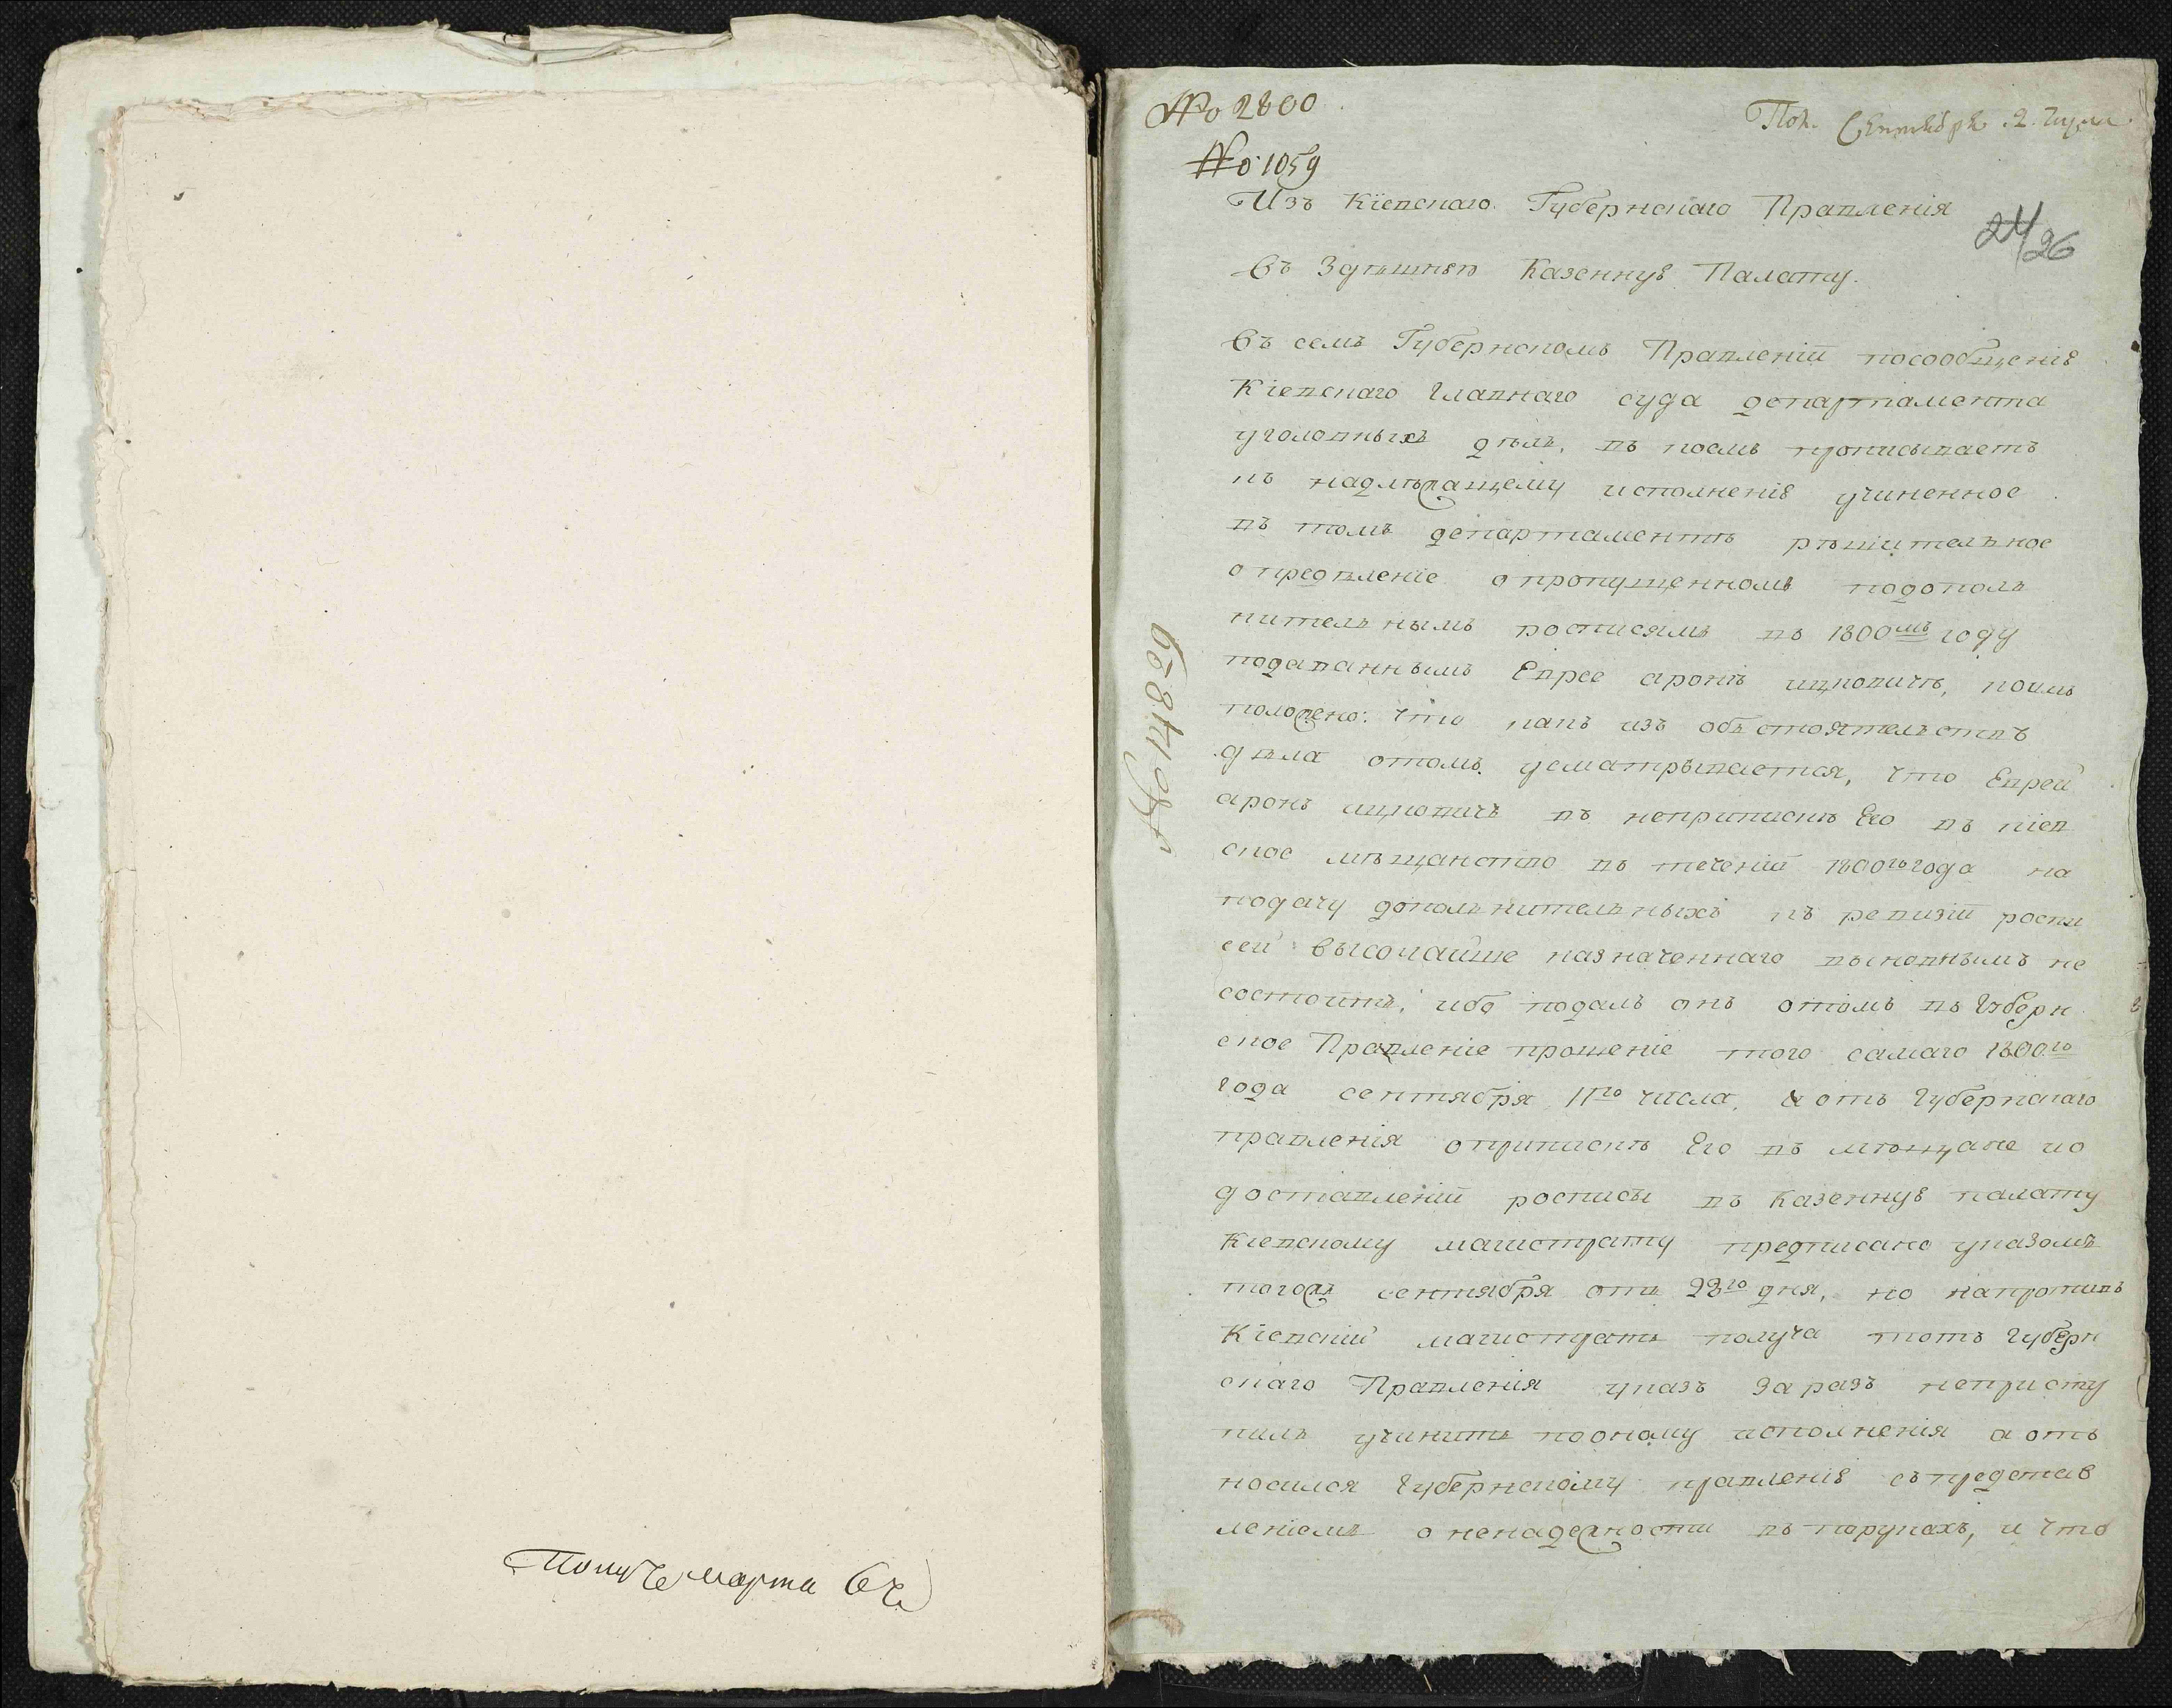 Получ марта 6 ч
№ 2800
Пол. Сентября 2. числа
№ 1059
Изъ Кіевскаго Губернскаго Правленія
24/26
Въ Здѣшнюю Казенную Палату.
Въ семъ Губернскомъ Правленіи посообщенію
Кіевскаго Главнаго суда департамента
уголовныхъ дѣлъ, въ коемъ прописываетъ
къ надлѣжащему исполненію учиненное
въ томъ департаментѣ рѣшительное
опредѣленіе о пропущенномъ подополь
нительнымъ росписямъ въ 1800мъ году
подаваннымъ Еврее аронѣ ицковичѣ, коимъ
положено: что какъ изъ обьстоятельствъ
дѣла отомъ усматрывается, что Еврей
аронъ ицковичъ въ неприпискѣ Его въ кіев
ское мѣщанство въ теченіи 1800го года на
подачу дополънителъныхъ къ ревизіи роспи
сей высочайше назначеннаго выновнымъ не
состоитъ, ибо подалъ онъ отомъ въ Губерн
ское Правленіе прошеніе того самаго 1800го
года сентября 11го числа, и отъ Губернскаго
правленія оприпискѣ Его въ мѣщане ио
доставленіи росписы въ Казенную палату
Кіевскому магистрату предписано указомъ
тогожъ сентября отъ 22го дня, но напротивъ
Кіевскій магистратъ получа тотъ Губерн
скаго Правленія указъ заразъ непристу
пилъ учинить поономy исполненія а отъ
носился Губернскому правленію съпредстав
леніемъ о ненадежности въ порукахъ, и что